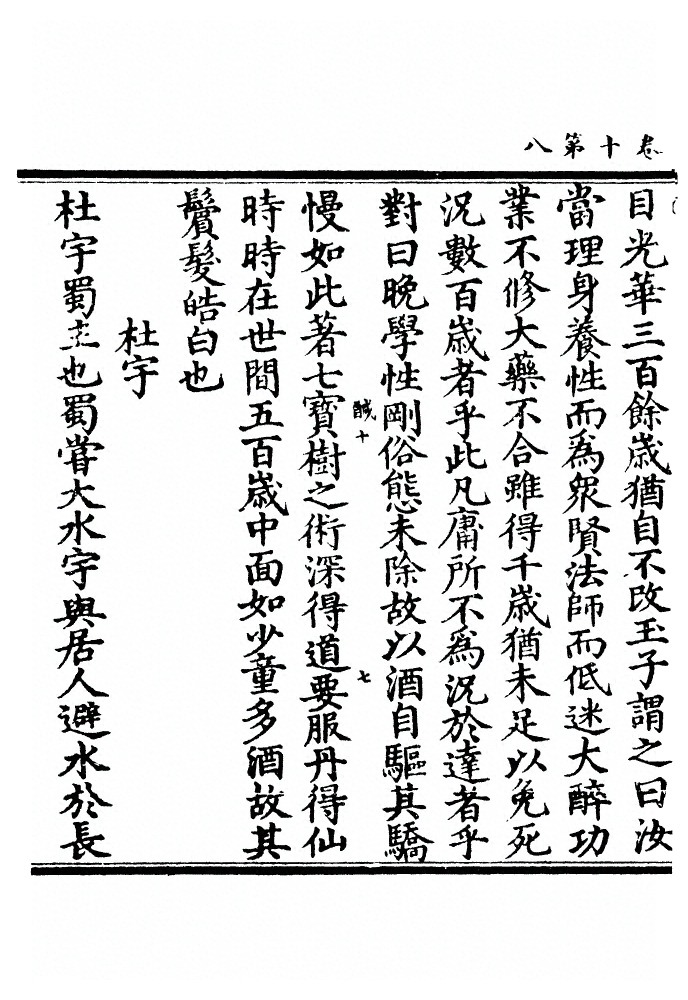 卷十第八
目光華三百餘歲猶自不改玉子謂之曰汝
當理身養性而為衆賢法師而低迷大醉功
業不修大藥不合雖得千歲猶未足以免死
況數百歲者乎此凡庸所不為況於達者乎
對曰晚學性剛俗態未除故以酒自驅其驕
醎十 七
慢如此著七寶樹之術深得道要服丹得仙
時時在世間五百歲中面如少童多酒故其
鬢髮皓白也
杜宇
杜宇蜀主也蜀嘗大水宇與居人避水於長